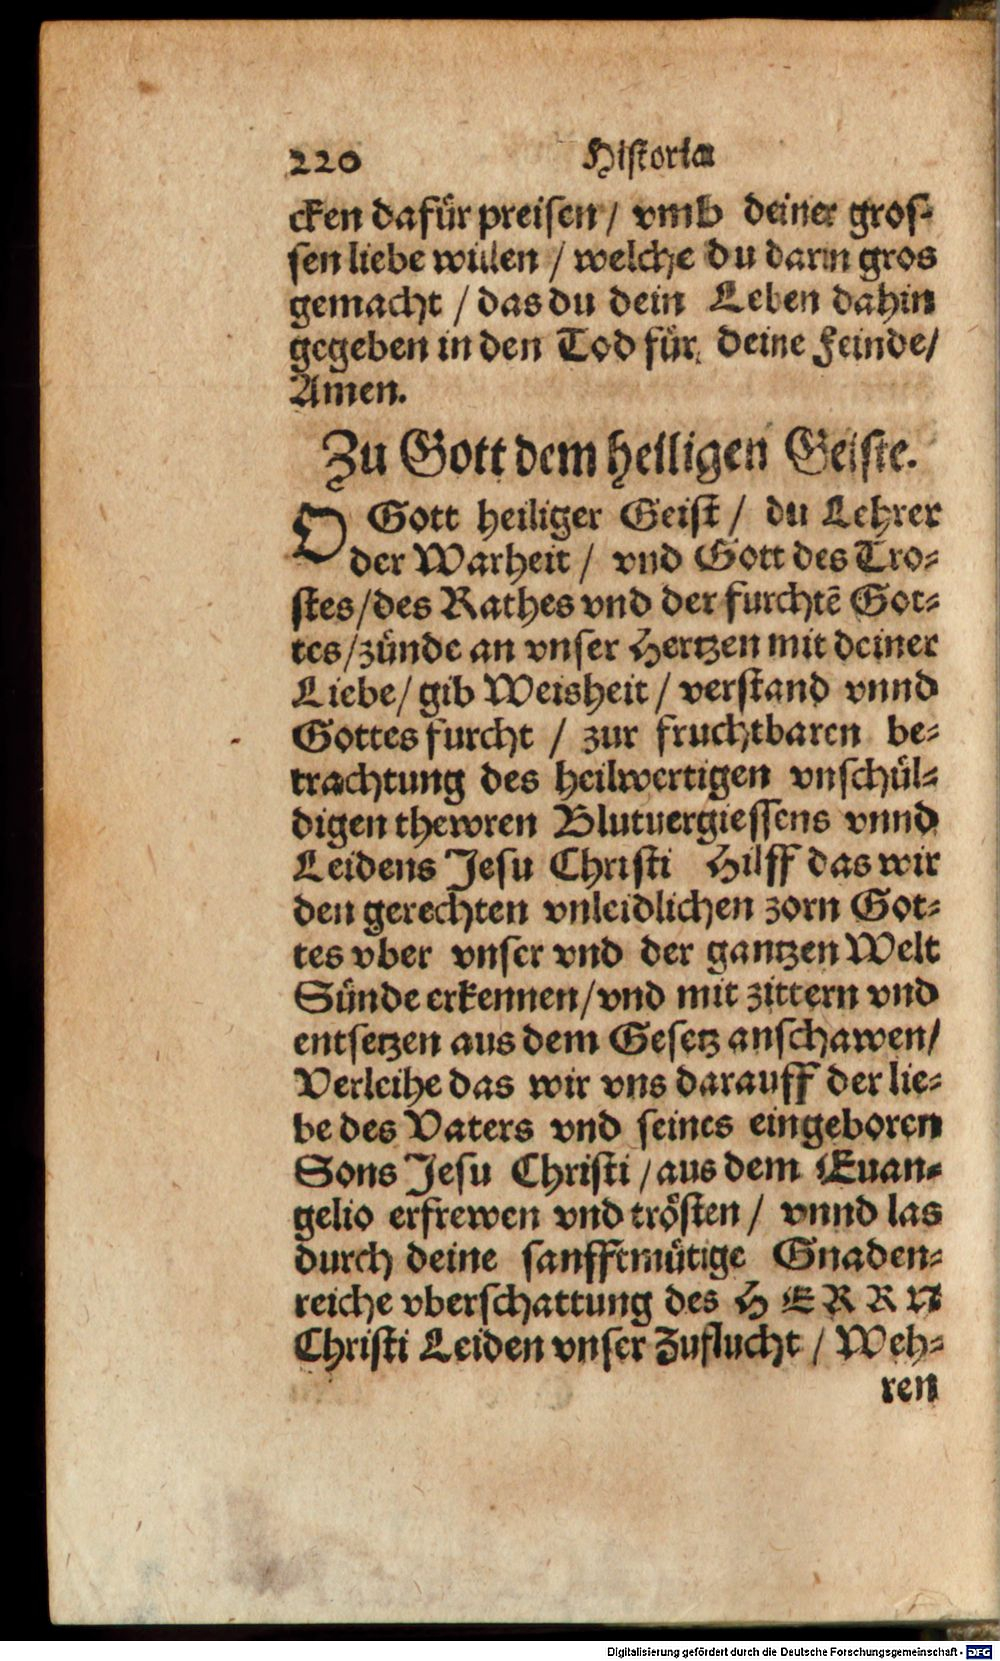 220 Historia
cken dafür preisen / vmb deiner gros-
sen liebe willen / welche du darin gros
gemacht / das du dein Leben dahin
gegeben in den Tod für deine Feinde /
Amen.
Zu Gott dem heiligen Geiste.
O Gott heiliger Geist / du Lehrer
der Warheit / vnd Gott des Tro-
stes / des Rathes vnd der furchtē Got-
tes / zünde an vnser Hertzen mit deiner
Liebe / gib Weisheit / verstand vnnd
Gottes furcht / zur fruchtbaren be-
trachtung des heilwertigen vnschül-
digen thewren Blutuergiessens vnnd
Leidens Jesu Christi Hilff das wir
den gerechten vnleidlichen zorn Got-
tes vber vnser vnd der gantzen Welt
Sünde erkennen / vnd mit zittern vnd
entsetzen aus dem Gesetz anschawen /
Verleihe das wir vns darauff der lie-
be des Vaters vnd seines eingeboren
Sons Jesu Christi / aus dem Euan-
gelio erfrewen vnd trösten / vnnd las
durch deine sanfftmütige Gnaden-
reiche vberschattung des HERRN
Christi Leiden vnser Zuflucht / Weh-
ren
Digitalisierung gefördert durch die Deutsche Forschungsgemeinschaft - DFG